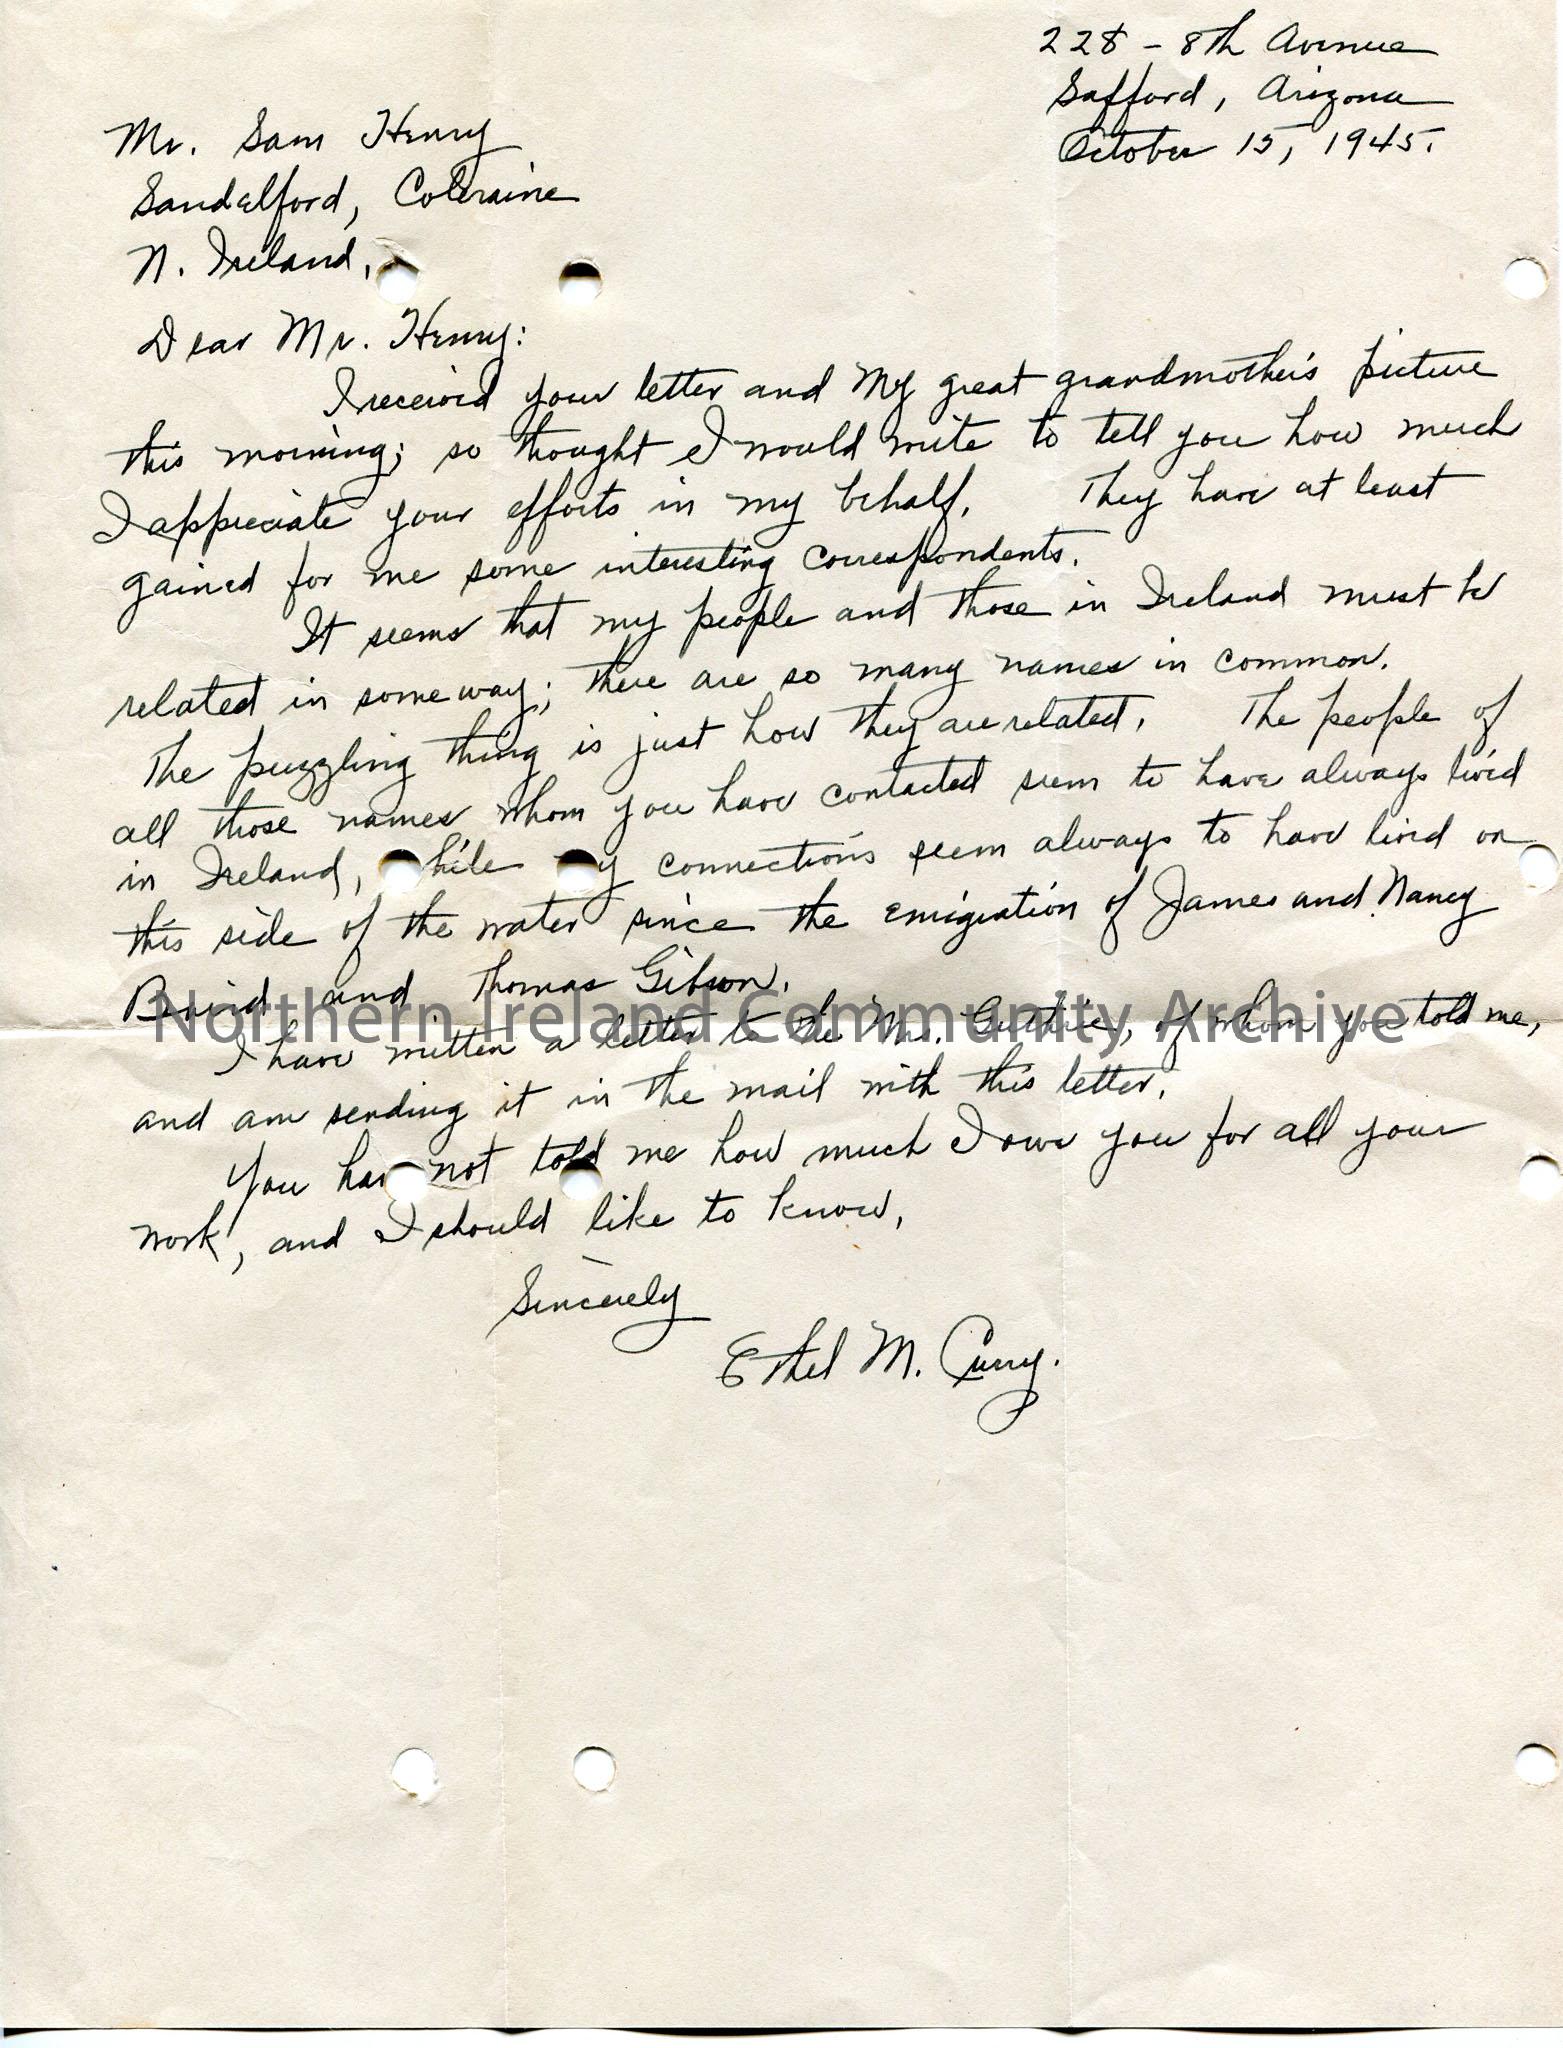 228 - 8th Avenue
Safford, Arizona
October 15, 1945.
Mr. Sam Henry
Sandelford, Coleraine
N. Ireland,
Dear Mr. Henry:
I received your letter and My great grandmother's picture
this morning; so thought I would write to tell you how much
I appreciate your efforts in my behalf. They have at least
gained for me some interesting correspondents.
It seems that my people and those in Ireland must be
related in some way; there are so many names in common.
The puzzling thing is just how they are related. The people of
all those names whom you have contacted seem to have always lived
in Ireland, while my connections seem always to have lived on
this side of the water since the emigration of James and Nancy
Baird and Thomas Gibson.
Northern Ireland Community Archive
I have written a letter to the Mrs. Guthrie, of whom you told me,
and am sending it in the mail with this letter.
You have not told me how much I owe you for all your
work, and I should like to know.
Sincerely
Ethel M. Curry.